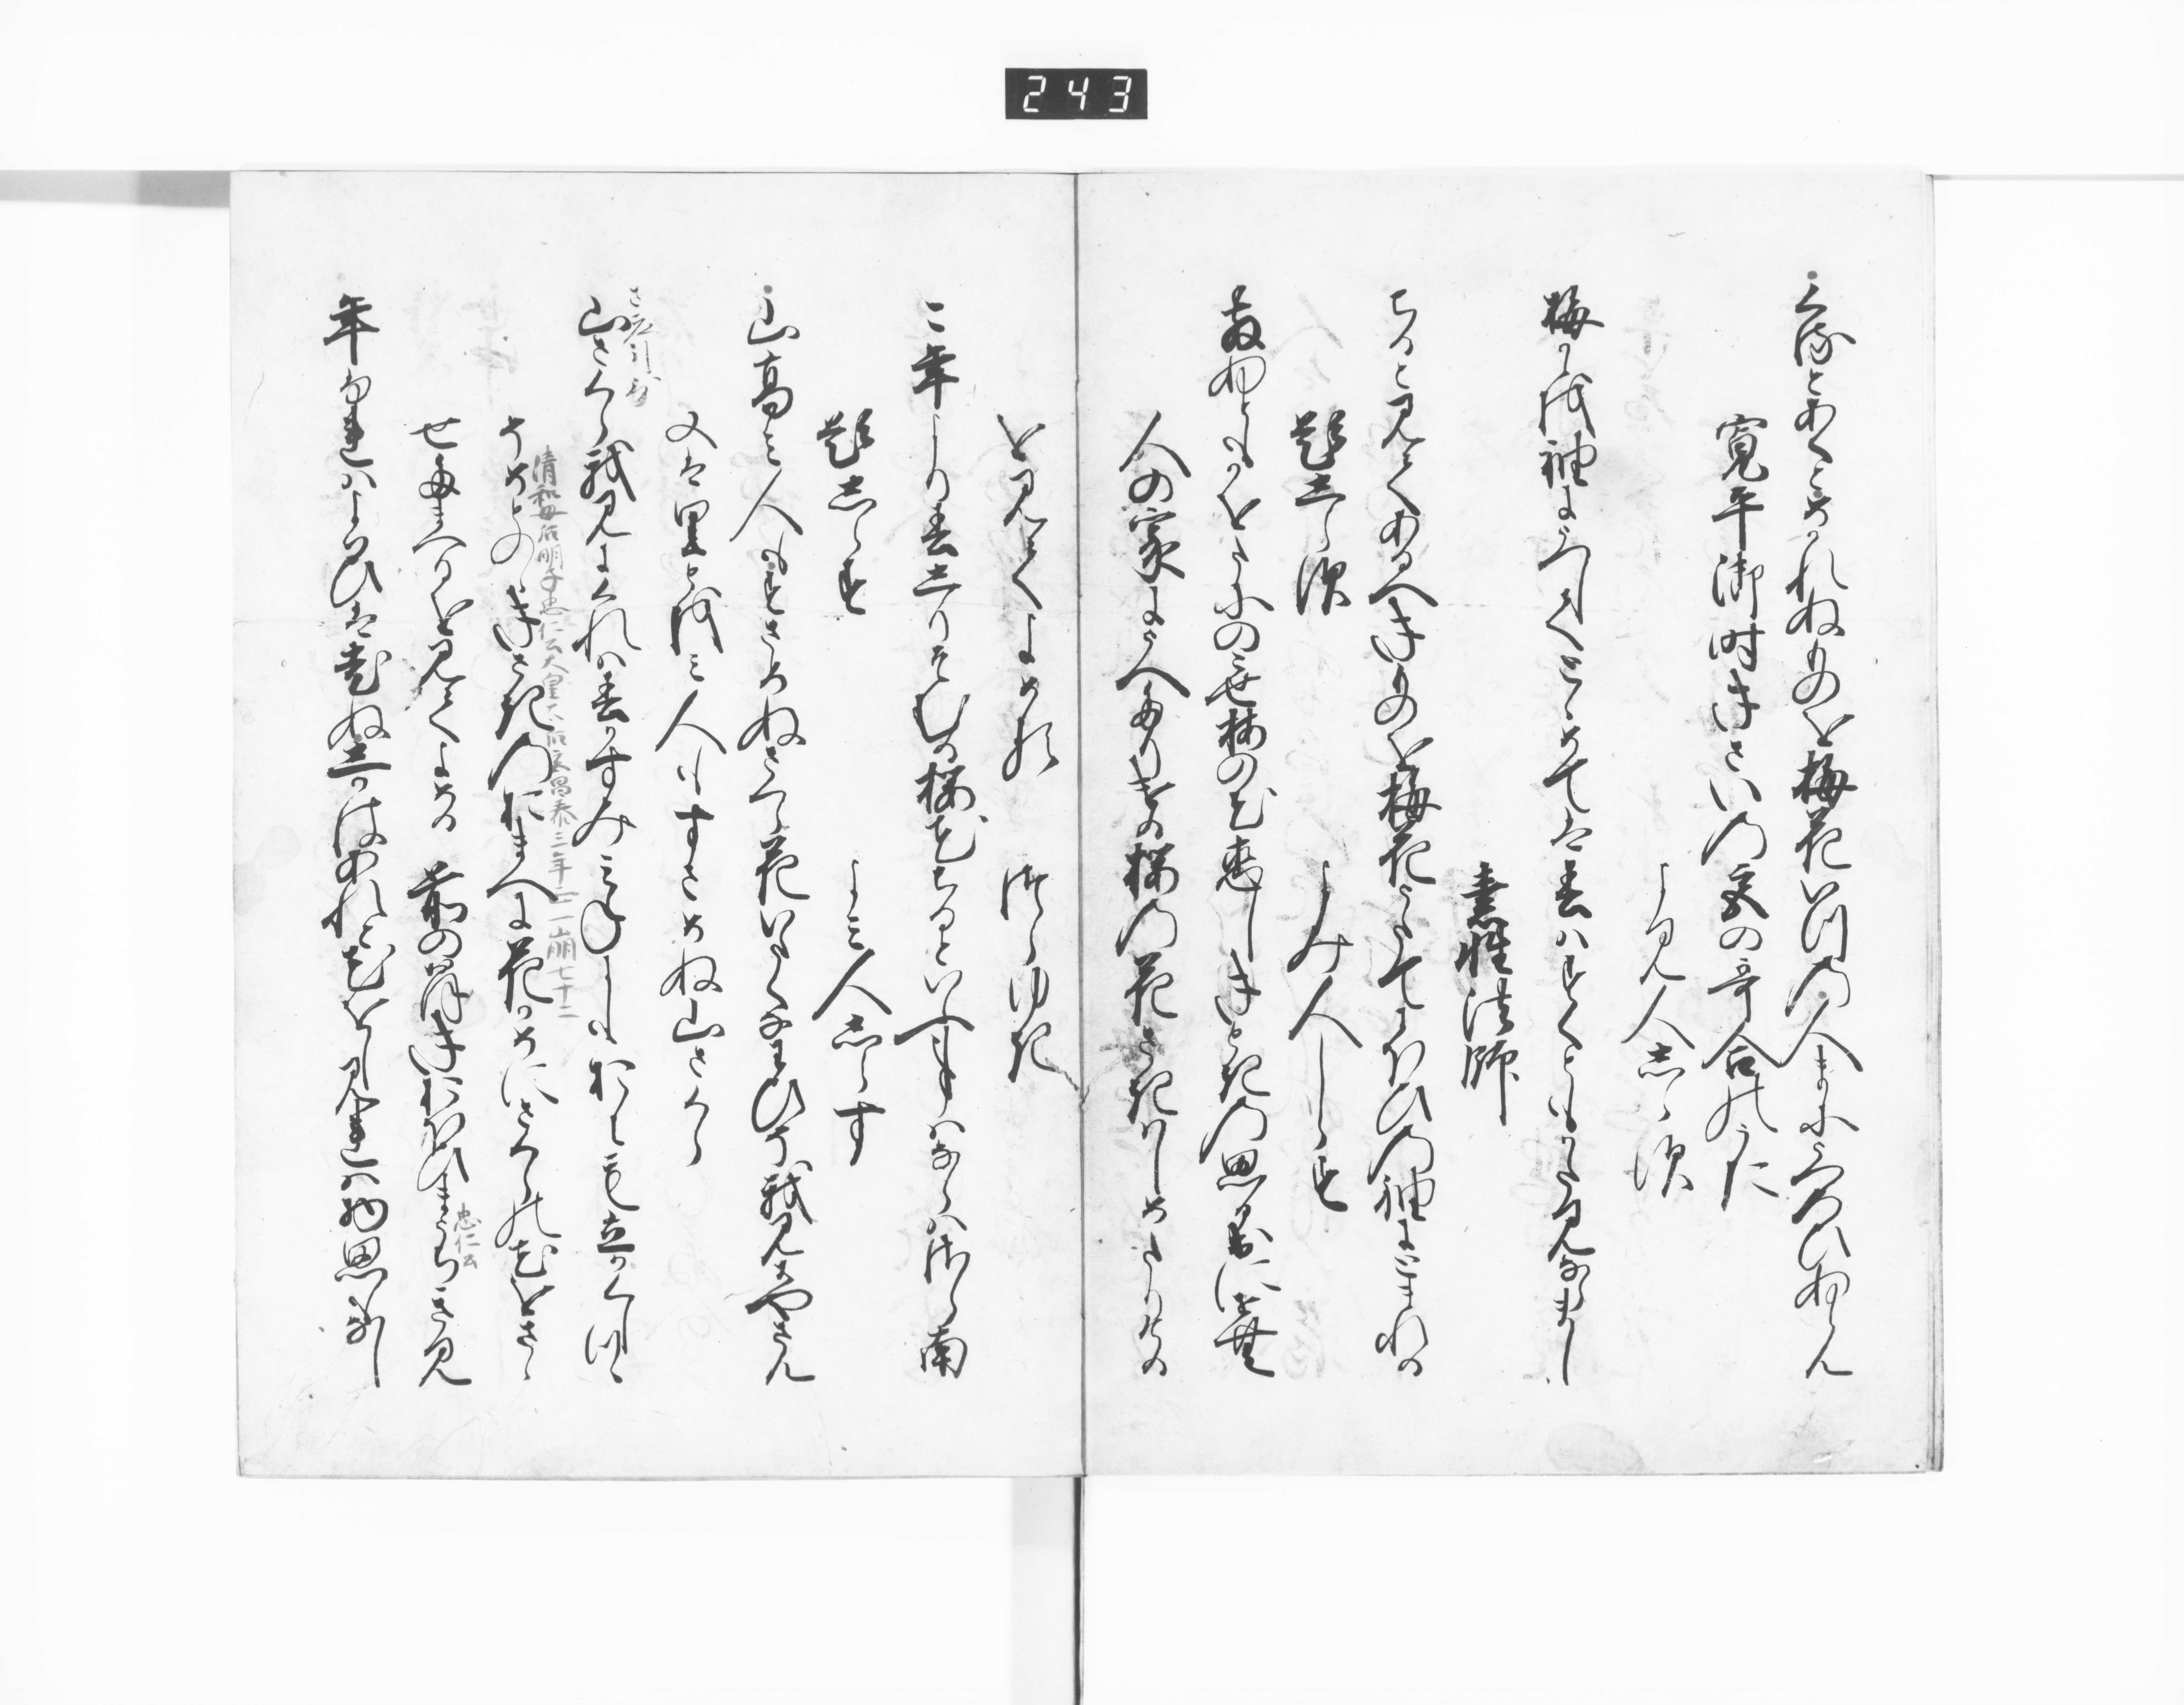 243
くるとあくとめかれぬものを梅花いつの人まにうつろひぬらん
寛平御時きさいの宮の哥合のうた
よみ人しらす
梅か香を袖にうつしてとゝめては春はすくともかたみならまし
素性法師
ちると見てあるへきものを梅花うたてにほひの袖にとまれる
題しらす　よみ人しらす
ちりぬともかをたにのこせ梅の花恋しきときの思いてにせむ
人の家にうへたりける桜の花さきはしめたりける
を見てよめる　つらゆき
ことしより春しりそむる桜花ちるといふ事はならはさらなん
題しらす　よみ人しらす
山高み人もすさめぬさくら花いたくなわひそ我見はやさん
又は里とをみ人もすさめぬ山さくら
山さくら我見にくれは春かすみみねにもおにも立かくしつゝ
清和母后明子忠仁公女皇太后宮昌泰三年 崩七十二
そめとのゝきさきのおまへに花かめにさくらの花をさゝ
せたまへるを見てよめる　前のおほきおほいまうちきみ
忠仁公
年ふれはよはひはおいぬしかはあれと花をし見れは物思もなし